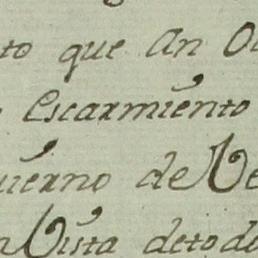 to que an O
Escarmiento
uierno de Ve
n Vista detodo